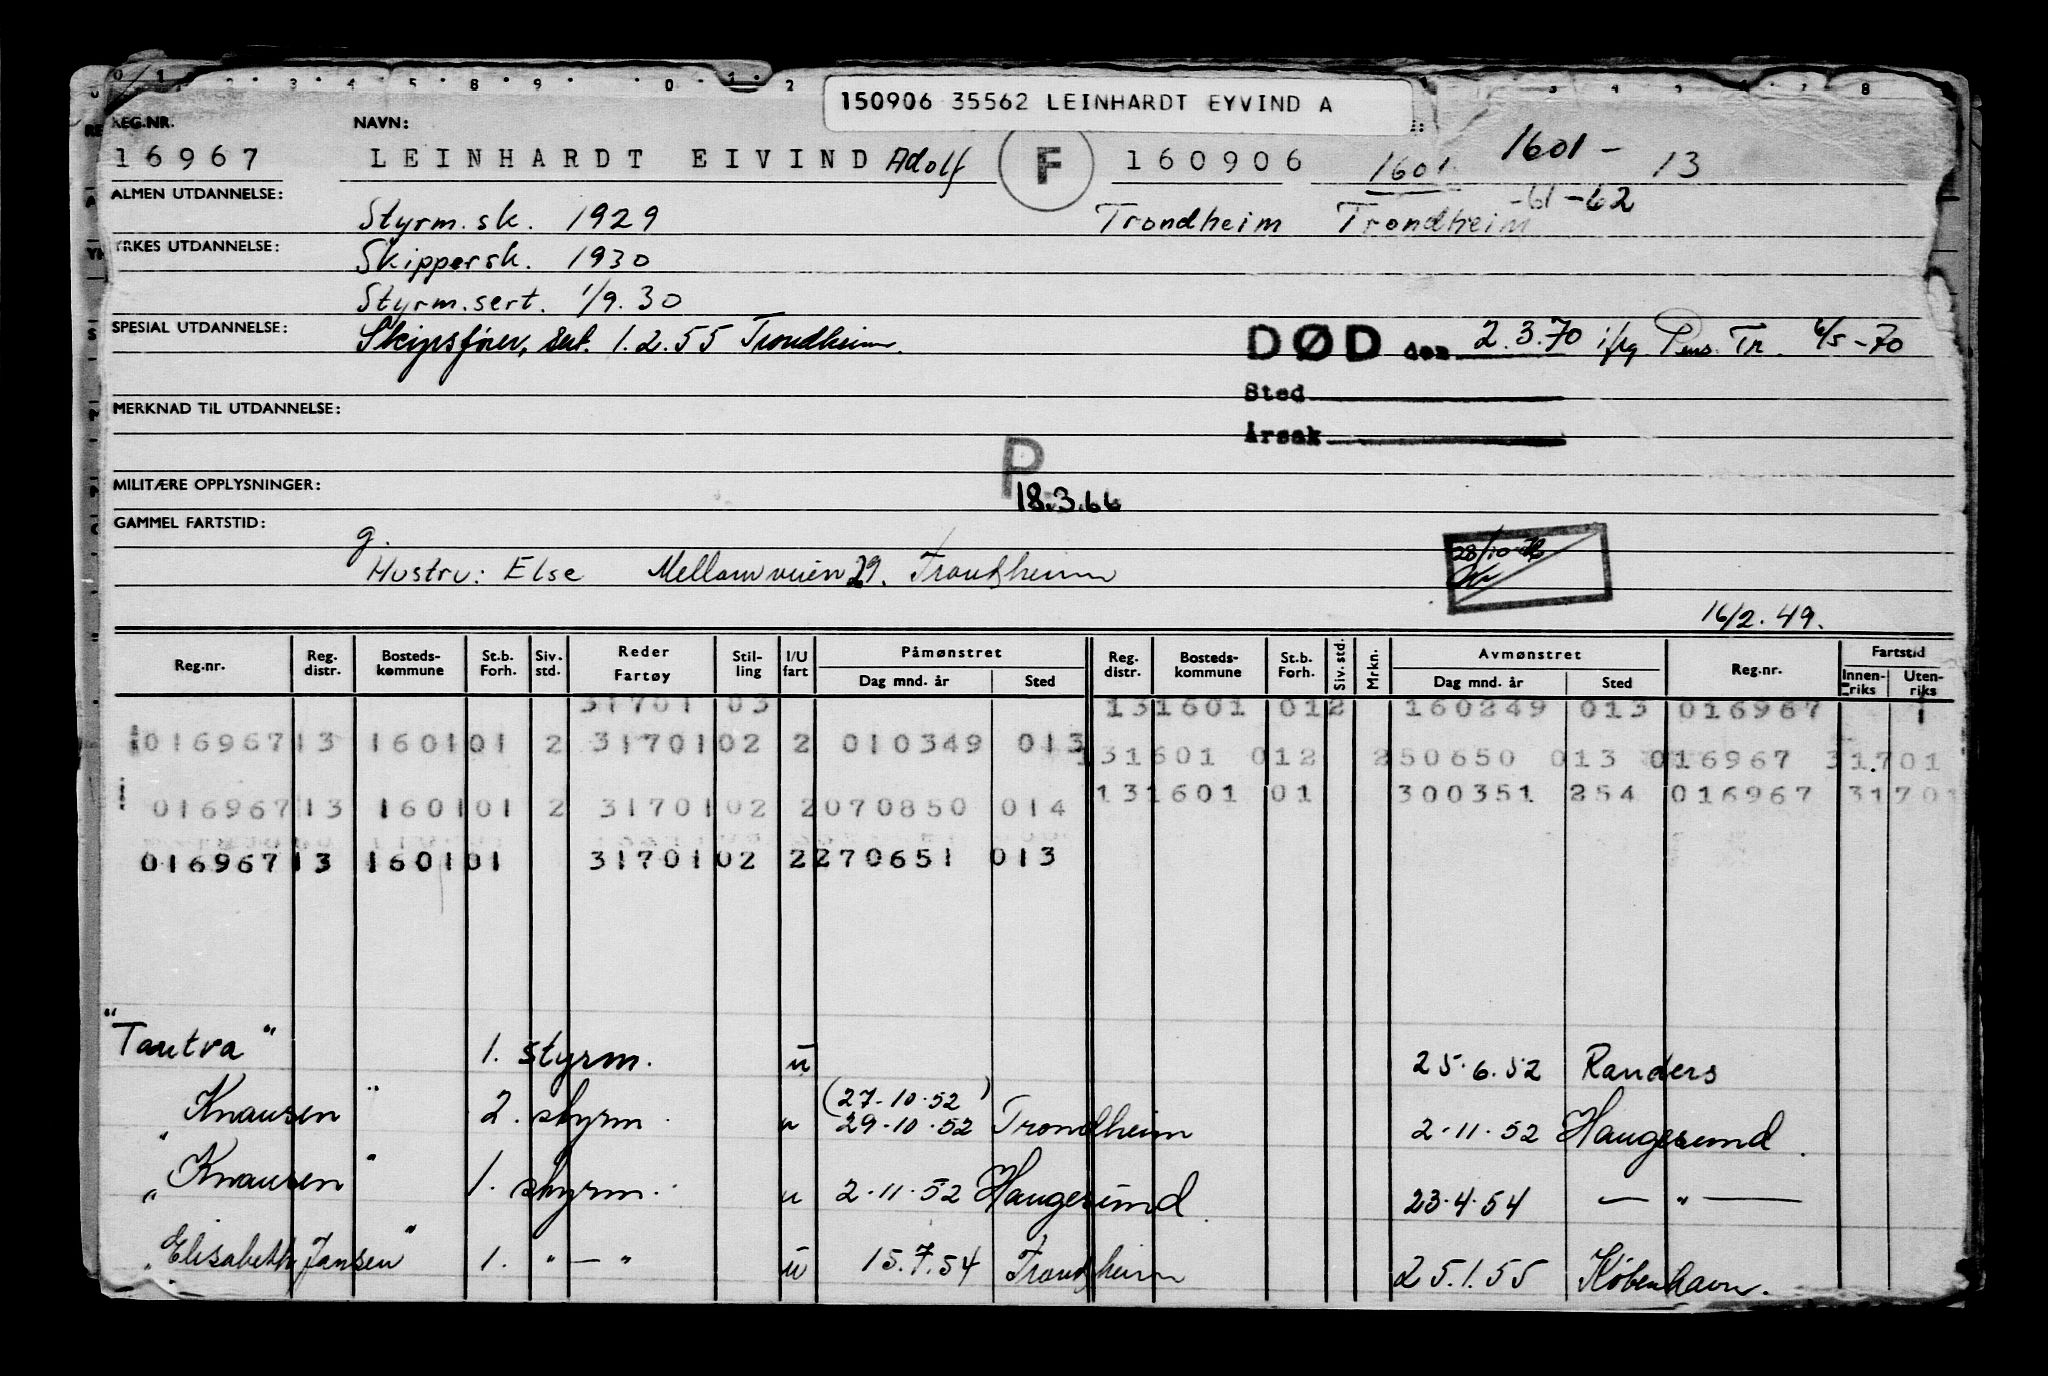 150906 35562 LEINHARDT EYVIND A
REG.NR. NAVN:
16967 LEINHARDT EIVIND Adolf F 160906 1601 1601 - 13
-61-62
ALMEN UTDANNELSE: Styrm.sk. 1929 Trondheim Trondheim
YRKES UTDANNELSE: Skippersk. 1930
Styrm.sert. 1/9.30
SPESIAL UTDANNELSE: Skipsfører, sert. 1.2.55 Trondheim. DØD den 2.3.70 iflg. Pens. Tr. 6/5-70
Sted
MERKNAD TIL UTDANNELSE:
Årsak
P
MILITÆRE OPPLYSNINGER: 18.3.66
GAMMEL FARTSTID: g.
28/10
Hustru: Else Mellomveien 29. Trondheim
16/2.49.
Reg.nr. Reg. distr. Bosteds-kommune St.b. Forh. Siv. std. Reder Fartøy Stil-ling I/U fart Påmønstret Dag mnd. år Sted Reg. distr. Bosteds-kommune St.b. Forh. Siv. std. Mrkn. Avmønstret Dag mnd. år Sted Reg.nr. Fartstid Innen-riks Uten-riks
31701 03 131601 012 160249 013 016967
016967 13 1601 01 2 31701 02 2 010349 013 131601 012 250650 013 016967 31701
016967 13 1601 01 2 31701 02 2 070850 014 131601 01 300351 254 016967 31701
016967 13 1601 01 31701 02 2 270651 013
"Tautra" 1. styrm. u 25.6.52 Randers
(27-10-52)
"Knausen" 2. styrm. u 29-10-52 Trondheim 2-11-52 Haugesund.
"Knausen" 1. styrm. u 2-11-52 Haugesund. 23-4-54 — " —
"Elisabeth Jansen" 1. " — " u 15.7.54 Trondheim 25.1.55 København.